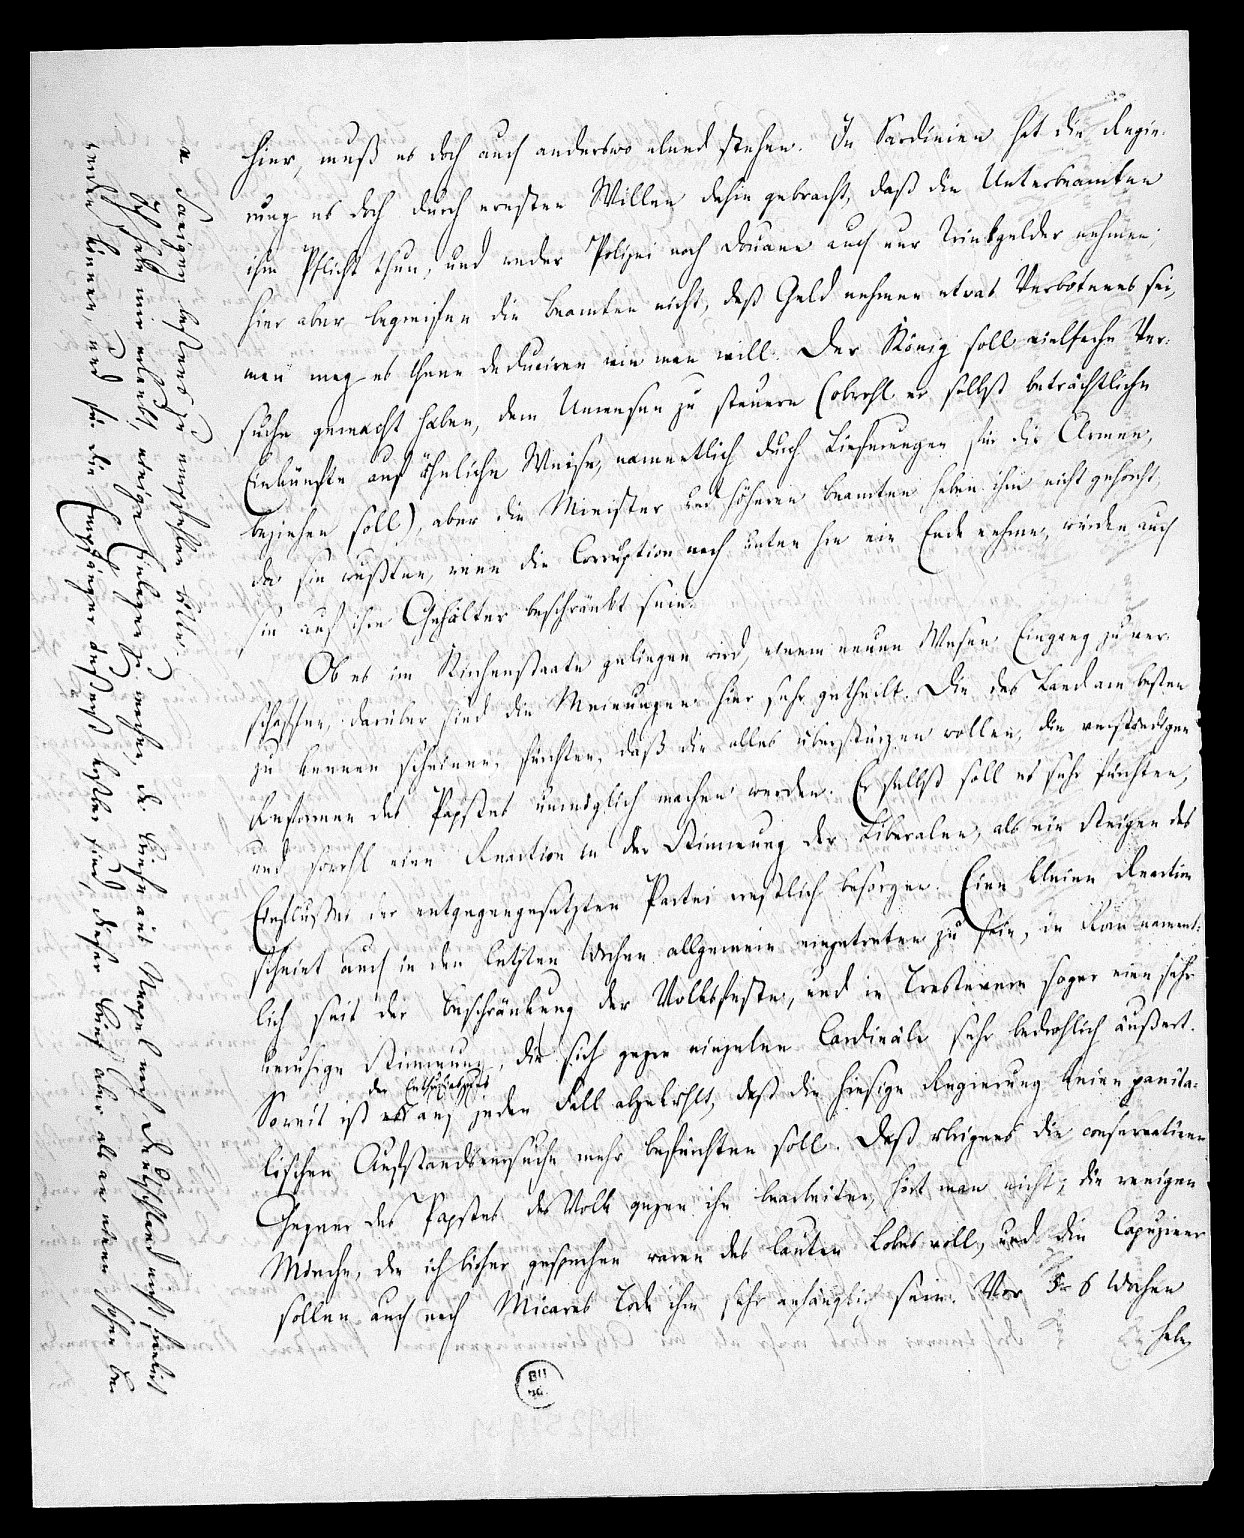 hier, muß es doch auch anderswo elend stehen. In Sardinien hat die Regie-
rung es doch durch ernsten Willen dahin gebracht, daß die Unterbeamten
ihre Pflicht thun, und weder Polizei noch Douane auch nur Trinkgelder nehmen;
hier aber begreifen die Beamten nicht, daß Geld nehmen etwas Verbotenes sei,
man mag es ihnen deduciren wie man will. Der König soll vielfache Ver-
suche gemacht haben, dem Unwesen zu steuern (obwohl er selbst beträchtliche
Einkünfte auf ähnliche Weise, namentlich durch Lieferungen für die Armee,
beziehen soll), aber die Minister und höheren Beamten haben ihm nicht gehorcht,
da sie wußten, wenn die Corruption nach unten hin ein Ende nehme, würden auch
sie auf ihre Gehälter beschränkt sein.
Ob es im Kirchenstaate gelingen wird, einem neuen Wesen Eingang zu ver-
schaffen, darüber sind die Meinungen hier sehr getheilt. Die das Land am besten
zu kennen scheinen, fürchten, daß die alles überstürzen wollen, die verständigen
Reformen des Papstes unmöglich machen werden. Er selbst soll es sehr fürchten,
und sowohl eine Reaction in der Stimmung der Liberalen, als ein Steigen des
Einflusses der entgegengesetzten Partei ernstlich besorgen. Eine kleine Reaction
scheint auch in den letzten Wochen allgemein eingetreten zu sein, in Rom nament-
lich seit der Beschränkung der Volksfeste, und in Trastevere sogar eine sehr
unruhige Stimmung, die sich gegen einzelne Cardinäle sehr bedrohlich äußert.
der Enthusiasmus
Soweit ist auf jeden Fall abgekühlt, daß die hiesige Regierung keine
lischen Aufstandsversuche mehr befürchten soll. Daß übrigens die conservativen
Gegner des Papstes das Volk gegen ihn bearbeiten, hört man nicht; die wenigen
Mönche, die ich bisher gesprochen waren des lauten Lobes voll, und die Capuziner
sollen auch nach Micaras Tode ihm sehr anhänglich sein. Vor 6 Wochen
habe
Ich habe mir erlaubt, einige Einlagen zu machen, da Briefe aus Neapel nach Deutschland
können, und für die Empfänger